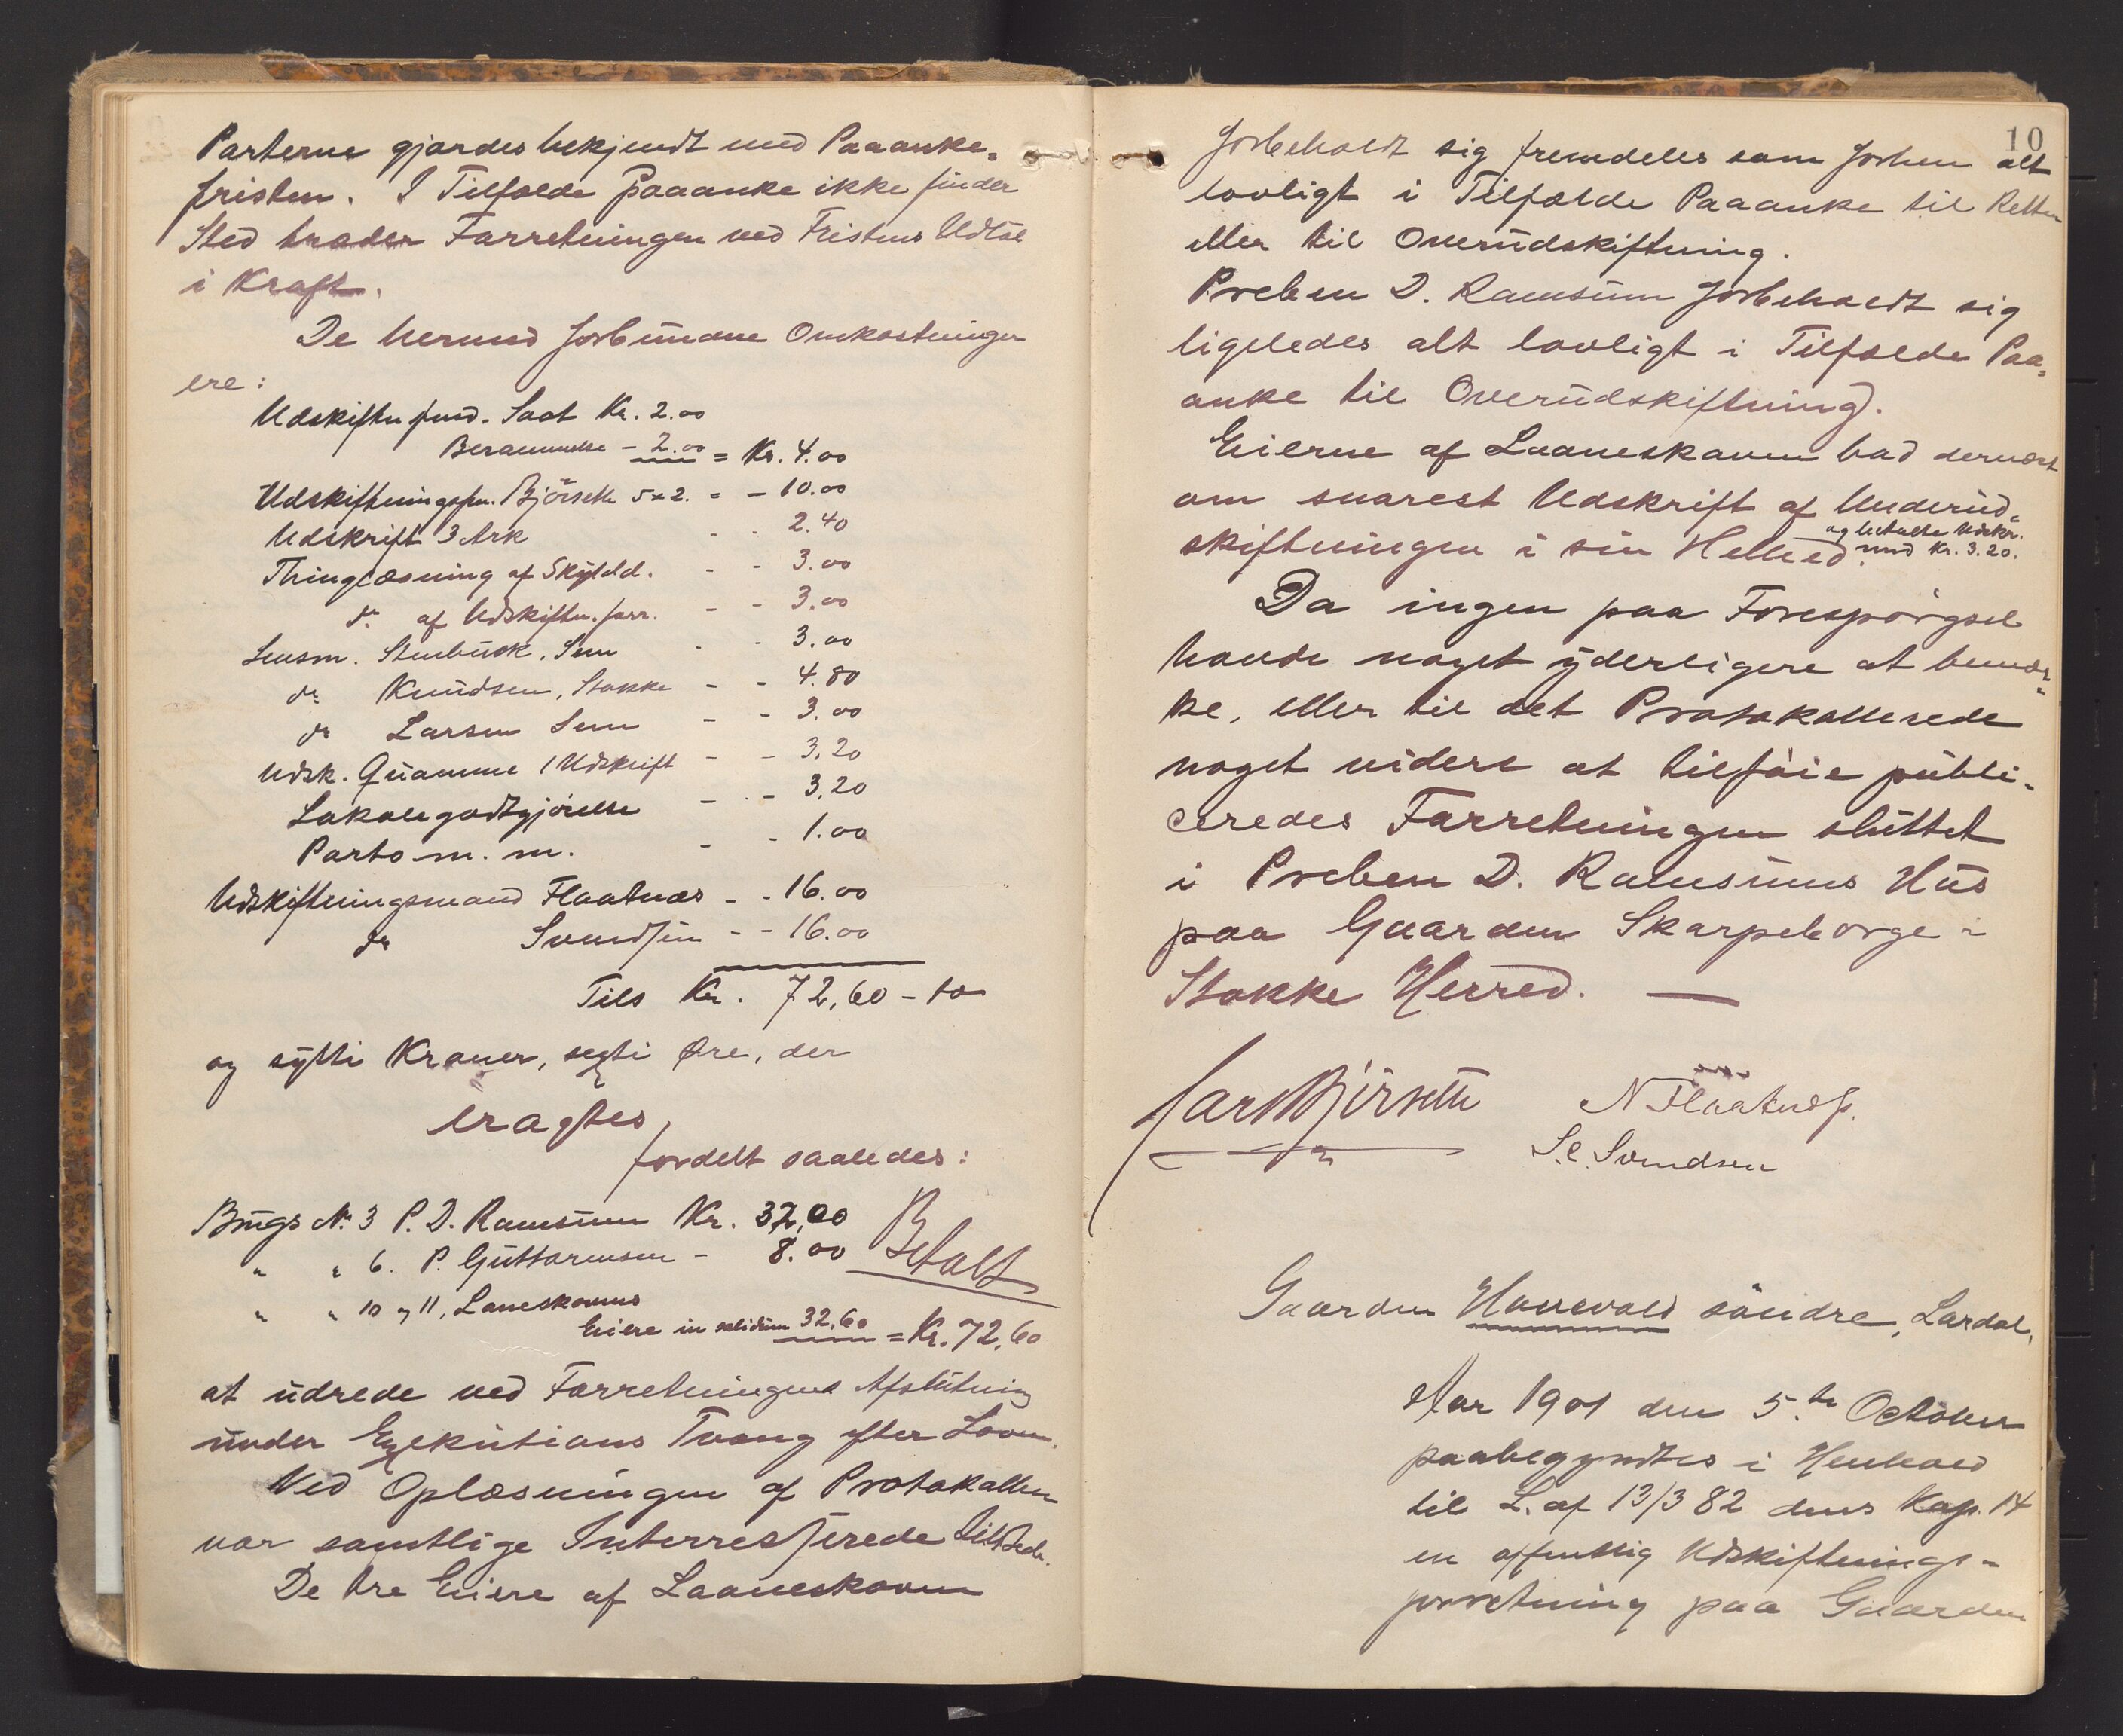 Parterne gjordes bekjendt med Paaanke-
fristen. I Tilfælde Paaanke ikke finder
Sted træder Forretningen ved Fristens Udløb
i Kraft.
De herved forbundne Omkostninger
ere:
Udskiftn fmd. Saat Kr. 2.00
Berammelse - 2.00 = Kr. 4.00
Udskiftningsfm. Bjørseth 5x2. = - 10.00
Udskrift 3 Ark - - 2.40
Thinglæsning af Skyldd. - - 3.00
do af Udskiftn. forr. - - 3.00
Lensm. Stenbuck, Sem - - 3.00
do Knudsen, Stokke - - 4.80
do Larsen Sem - - 3.00
Udsk. Quamme 1 Udskrift - - 3.20
Lokalegodtgjörelse - - 3.20
Porto m. m. - - 1.00
Udskiftningsmand Flaatnæs - - 16.00
do Svendsen - - 16.00
Tils Kr. 72,60 - to
og sytti Kroner, segti Øre, der
eragtes
fordelt saaledes:
Brugs No 3 P. D. Ramsum Kr. 32,00
" " 6. P. Guttormsen - 8.00 Betalt
" " 10 og 11, Laneskovens
Eiere in solidum 32,60 = Kr. 72,60
at udrede ved Forretningens Afslutning
under Exekutions Tvang efter Loven.
Ved Oplæsningen af Protokollen
var samtlige Interresserede tilstede.
De tre Eiere af Laaneskoven
10
forbeholdt sig fremdeles som forhen alt
lovligt i Tilfælde Paaanke til Retten
eller til Overudskiftning.
Preben D. Ramsum forbeholdt sig
ligeledes alt lovligt i Tilfælde Paa-
anke til Overudskiftning.
Eierne af Laaneskoven bad dernæst
om snarest Udskrift af Underud-
skiftningen i sin Helhed. og betalte Udskr.
med Kr. 3.20.
Da ingen paa Forespørgsel
havde noget yderligere at bemær-
ke, eller til det Protokollerede
noget videre at tilføie publi-
ceredes Forretningen sluttet
i Preben D. Ramsums Hus
paa Gaarden Skarpeborge i
Stokke Herred. —
Lars Bjørseth N Flaatnes.
S. C. Svendsen
Gaarden Honevald söndre, Lardal.
Aar 1901 den 5.te October
paabegyndtes i Henhold
til L. af 13/3 82 dens Kap. 14
en offentlig Udskiftnings-
forretning paa Gaarden